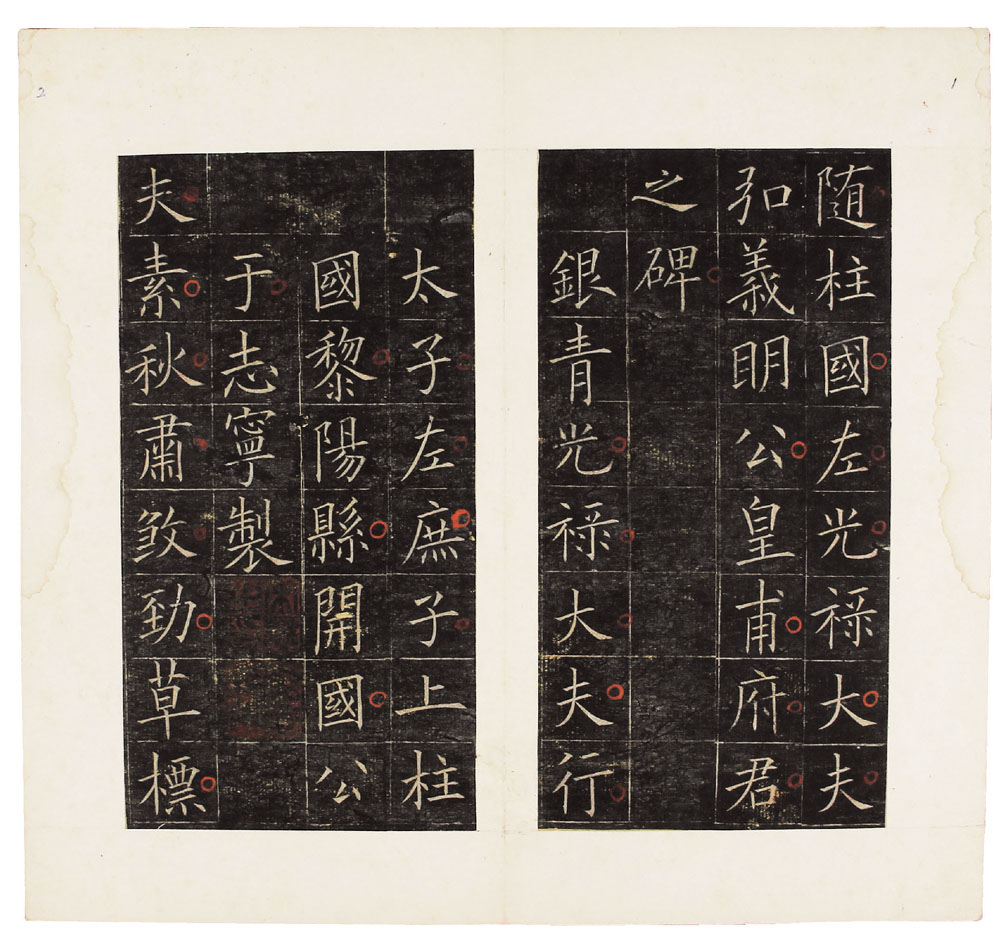 1
随柱國左光祿大夫
弘義明公皇甫府君
之碑
銀青光祿大夫行
2
太子左庶子上柱
國黎陽縣開國公
于志寧製
夫素秋肅煞勁草標